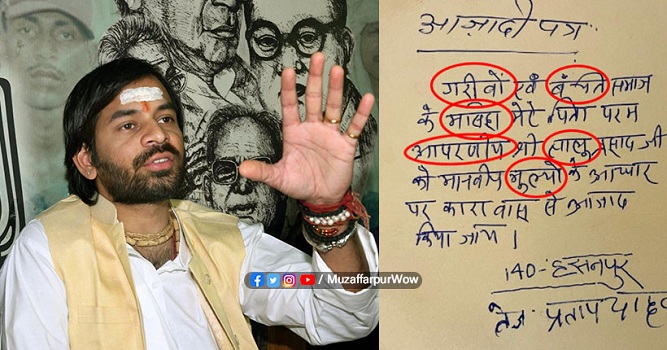 आज़ादी पत्र:
गरीवों एवं बंन्चति समाज
के मसिहा मेरे पिता परम
आपरणीय श्री लालु प्रसाद जी
को मानवीय मुल्यो के आधार
पर कारावास से आज़ाद
किया जाय।
140-हसनपुर
तेज प्रताप यादव
/ MuzaffarpurWow